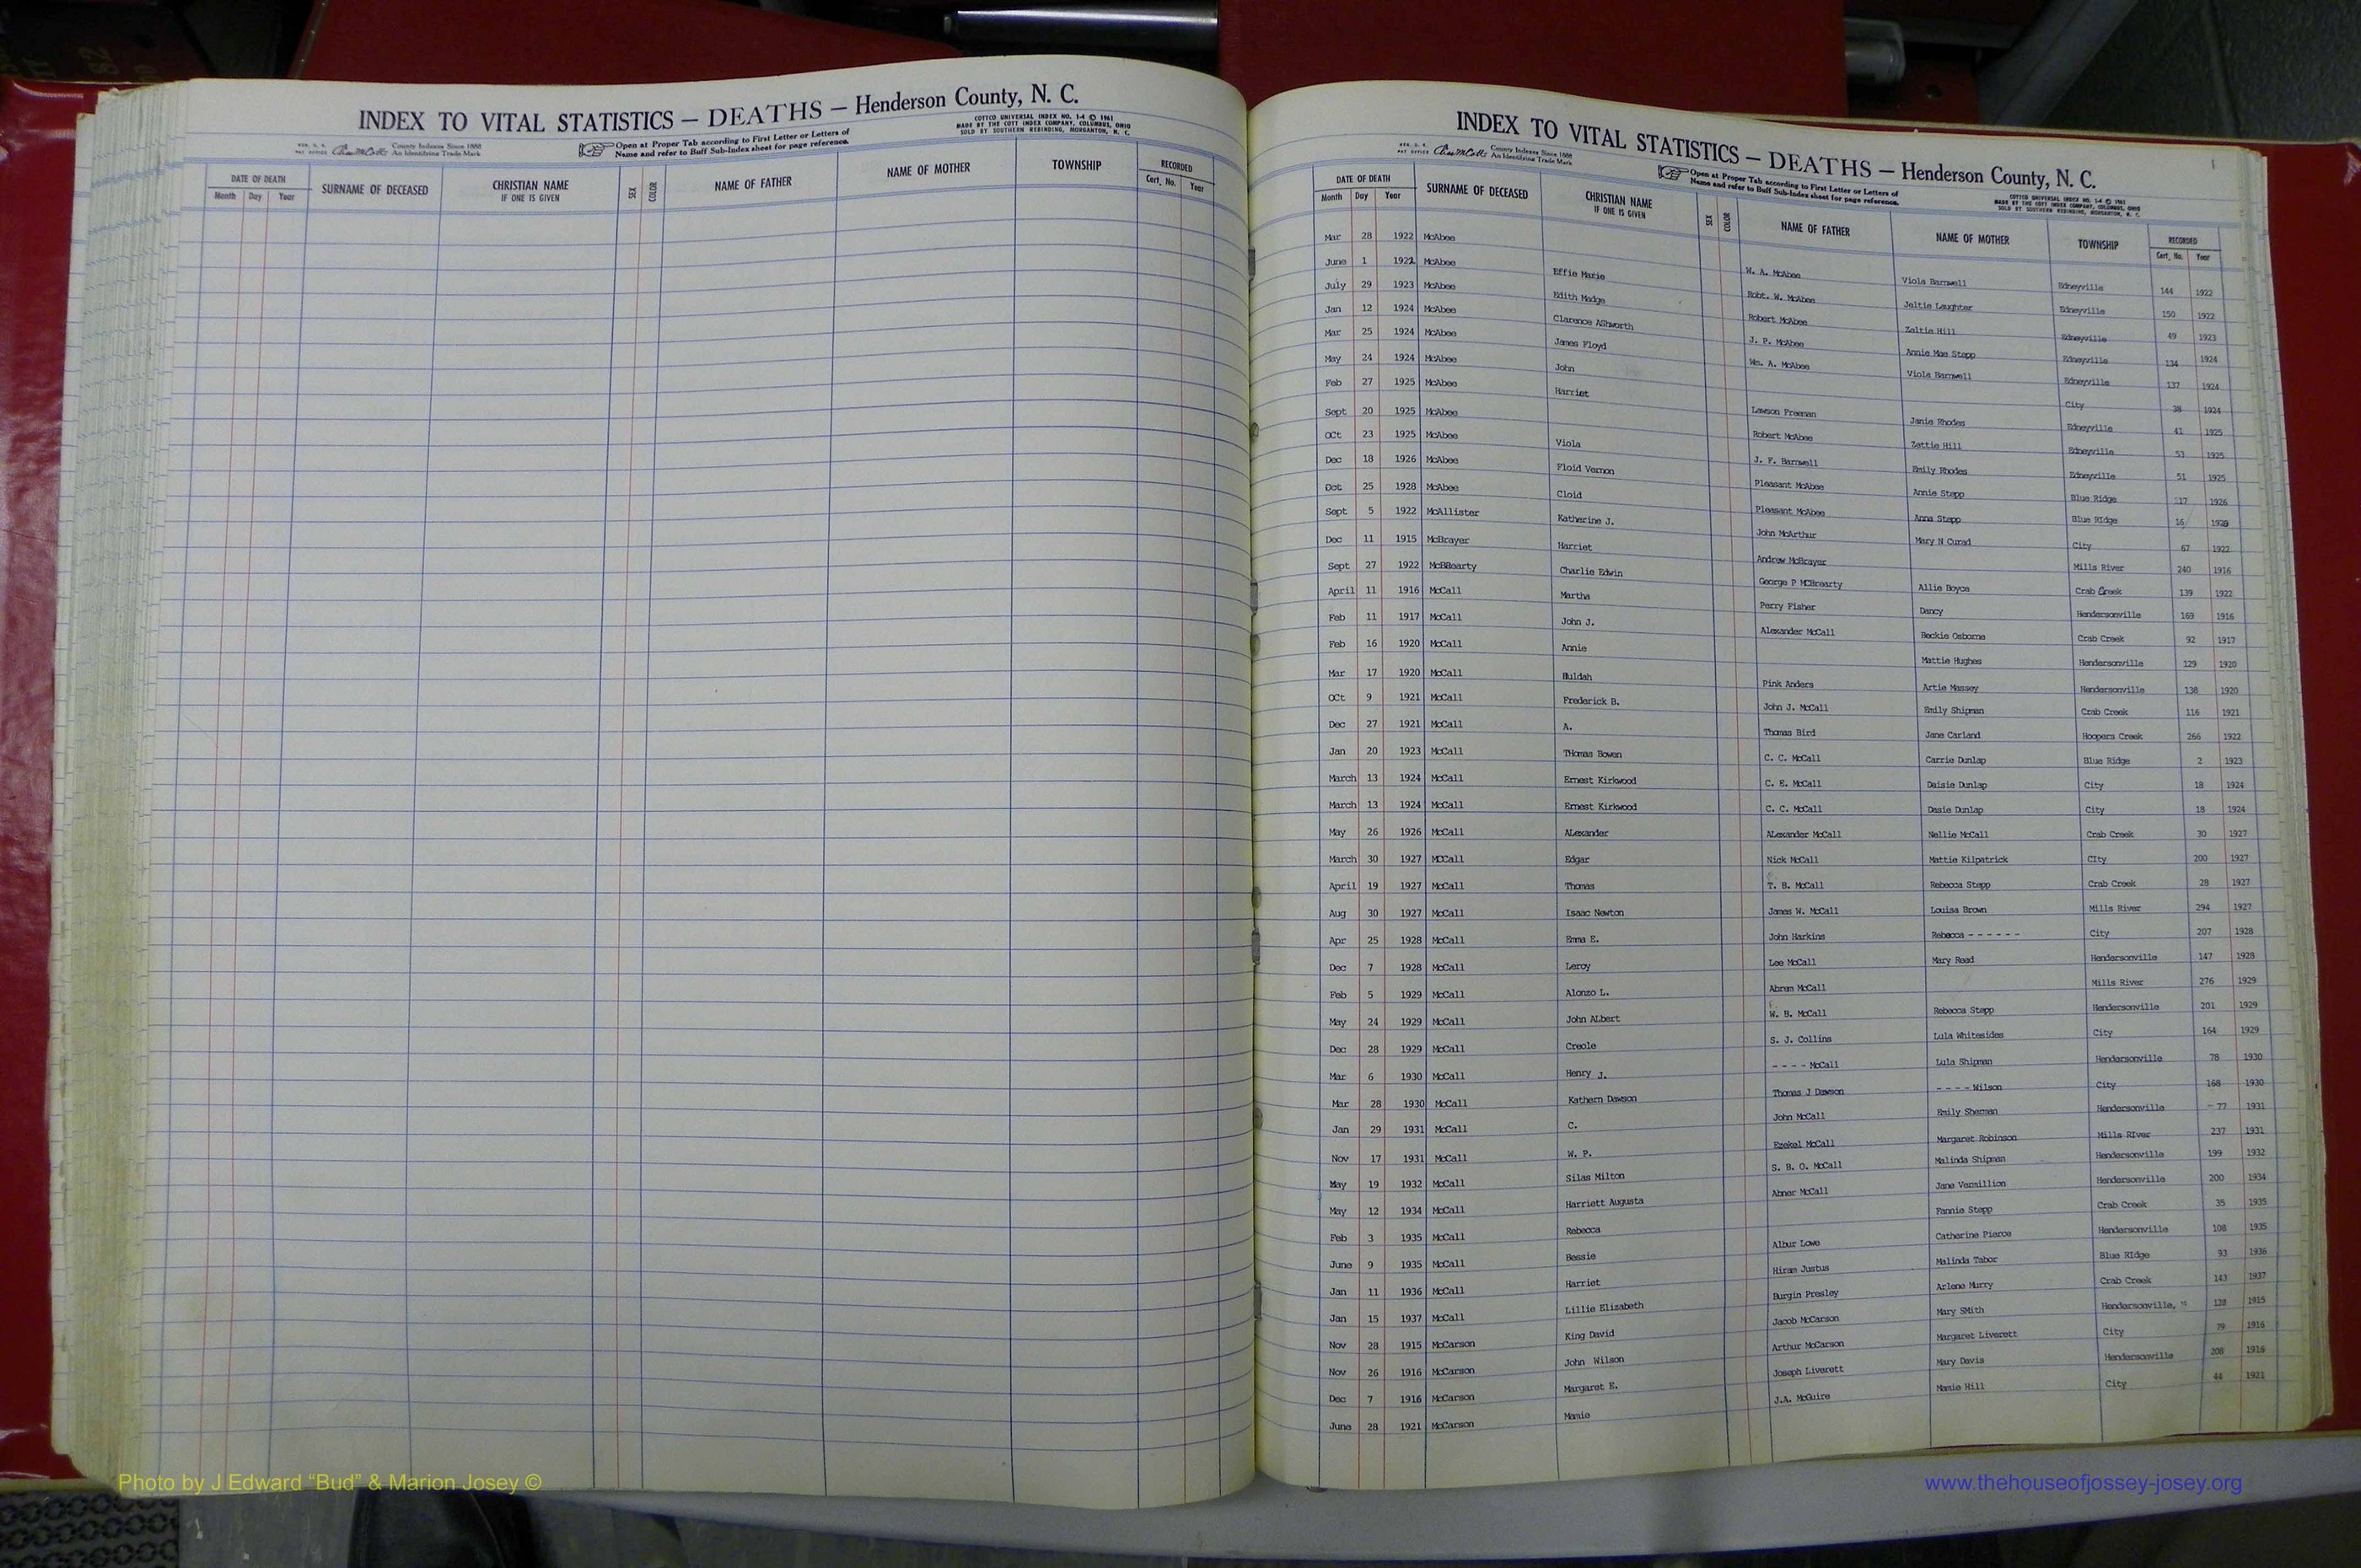 INDEX TO VITAL STATISTICS — DEATHS — Henderson County, N. C.
REG. U. S. PAT OFFICE County Indexes Since 1888 An Identifying Trade Mark
Open at Proper Tab according to First Letter or Letters of
Name and refer to Buff Sub-Index sheet for page reference.
COTTCO UNIVERSAL INDEX NO. 1-4 © 1961
MADE BY THE COTT INDEX COMPANY, COLUMBUS, OHIO
SOLD BY SOUTHERN REBINDING, MORGANTON, N. C.
DATE OF DEATH SURNAME OF DECEASED CHRISTIAN NAME IF ONE IS GIVEN SEX COLOR NAME OF FATHER NAME OF MOTHER TOWNSHIP RECORDED
Month Day Year Cert. No. Year
INDEX TO VITAL STATISTICS — DEATHS — Henderson County, N. C.
REG. U. S. PAT OFFICE County Indexes Since 1888 An Identifying Trade Mark
Open at Proper Tab according to First Letter or Letters of
Name and refer to Buff Sub-Index sheet for page reference.
COTTCO UNIVERSAL INDEX NO. 1-4 © 1961
MADE BY THE COTT INDEX COMPANY, COLUMBUS, OHIO
SOLD BY SOUTHERN REBINDING, MORGANTON, N. C.
DATE OF DEATH SURNAME OF DECEASED CHRISTIAN NAME IF ONE IS GIVEN SEX COLOR NAME OF FATHER NAME OF MOTHER TOWNSHIP RECORDED
Month Day Year Cert. No. Year
Mar 28 1922 McAbee W. A. McAbee Viola Barnwell Edneyville 144 1922
June 1 1922 McAbee Effie Marie Robt. W. McAbee Jeltie Laughter Edneyville 150 1922
July 29 1923 McAbee Edith Madge Robert McAbee Zeltie Hill Edneyville 49 1923
Jan 12 1924 McAbee Clarence AShworth J. P. McAbee Annie Mae Stepp Edneyville 134 1924
Mar 25 1924 McAbee James Floyd Wm. A. McAbee Viola Barnwell Edneyville 137 1924
May 24 1924 McAbee John City 38 1924
Feb 27 1925 McAbee Harriet Lawson Freeman Janie Rhodes Edneyville 41 1925
Sept 20 1925 McAbee Robert McAbee Zettie Hill Edneyville 53 1925
OCt 23 1925 McAbee Viola J. F. Barnwell Emily Rhodes Edneyville 51 1925
Dec 18 1926 McAbee Floid Vernon Pleasant McAbee Annie Stepp Blue Ridge 117 1926
Oct 25 1928 McAbee Cloid Pleasant McAbee Anna Stepp Blue RIdge 16 1928
Sept 5 1922 McAllister Katherine J. John McArthur Mary N Curad City 67 1922
Dec 11 1915 McBrayer Harriet Andrew McBrayer Mills River 240 1916
Sept 27 1922 McBBearty Charlie Edwin George P MCBrearty Allie Boyce Crab Creek 139 1922
April 11 1916 McCall Martha Perry Fisher Dancy Hendersonville 169 1916
Feb 11 1917 McCall John J. Alexander McCall Beckie Osborne Crab Creek 92 1917
Feb 16 1920 McCall Annie Mattie Hughes Hendersonville 129 1920
Mar 17 1920 McCall Huldah Pink Anders Artie Massey Hendersonville 138 1920
OCt 9 1921 McCall Frederick B. John J. McCall Emily Shipman Crab Creek 116 1921
Dec 27 1921 McCall A. Thomas Bird Jane Carland Hoopers Creek 266 1922
Jan 20 1923 McCall THomas Bowen C. C. McCall Carrie Dunlap Blue Ridge 2 1923
March 13 1924 McCall Ernest Kirkwood C. E. McCall Daisie Dunlap City 18 1924
March 13 1924 McCall Ernest Kirkwood C. C. McCall Dasie Dunlap City 18 1924
May 26 1926 McCall ALexander ALexander McCall Nellie McCall Crab Creek 30 1927
March 30 1927 MCCall Edgar Nick McCall Mattie Kilpatrick CIty 200 1927
April 19 1927 McCall Thomas T. B. McCall Rebecca Stepp Crab Creek 28 1927
Aug 30 1927 McCall Isaac Newton James W. McCall Louisa Brown Mills River 294 1927
Apr 25 1928 McCall Emma E. John Harkins Rebecca - - - - - - City 207 1928
Dec 7 1928 McCall Leroy Lee McCall Mary Reed Hendersonville 147 1928
Feb 5 1929 McCall Alonzo L. Abram McCall Mills River 276 1929
May 24 1929 McCall John ALbert W. B. McCall Rebecca Stepp Hendersonville 201 1929
Dec 28 1929 McCall Creole S. J. Collins Lula Whitesides City 164 1929
Mar 6 1930 McCall Henry J. - - - - McCall Lula Shipman Hendersonville 78 1930
Mar 28 1930 McCall Kathern Dawson Thomas J Dawson - - - - Wilson City 168 1930
Jan 29 1931 McCall C. John McCall Emily Sheman Hendersonville 77 1931
Nov 17 1931 McCall W. P. Ezekel McCall Margaret Robinson Mills RIver 237 1931
May 19 1932 McCall Silas Milton S. B. O. McCall Malinda Shipman Hendersonville 199 1932
May 12 1934 McCall Harriett Augusta Abner McCall Jane Vermillion Hendersonville 200 1934
Feb 3 1935 McCall Rebecca Fannie Stepp Crab Creek 35 1935
June 9 1935 McCall Bessie Albur Lowe Catherine Pierce Hendersonville 108 1935
Jan 11 1936 McCall Harriet Hiram Justus Malinda Tabor Blue RIdge 93 1936
Jan 15 1937 McCall Lillie Elizabeth Burgin Presley Arlene Murry Crab Creek 143 1937
Nov 28 1915 McCarson King David Jacob McCarson Mary SMith Hendersonville, 128 1915
Nov 26 1916 McCarson John Wilson Arthur McCarson Margaret Liverett City 79 1916
Dec 7 1916 McCarson Margaret E. Joseph Liverett Mary Davis Hendersonville 208 1916
June 28 1921 McCarson Mamie J.A. McGuire Mamie Hill City 44 1921
Photo by J Edward “Bud” & Marion Josey ©
www.thehouseofjossey-josey.org